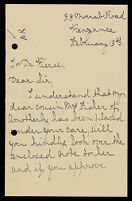 Marsh Road
Penzance
February 13th
To Dr Pierce.
Dear Sir
I understand that my
dear cousin Mrs Fisher of
has been placed
under your care, will
you kindly look over the
enclosed note to her
and if you approve